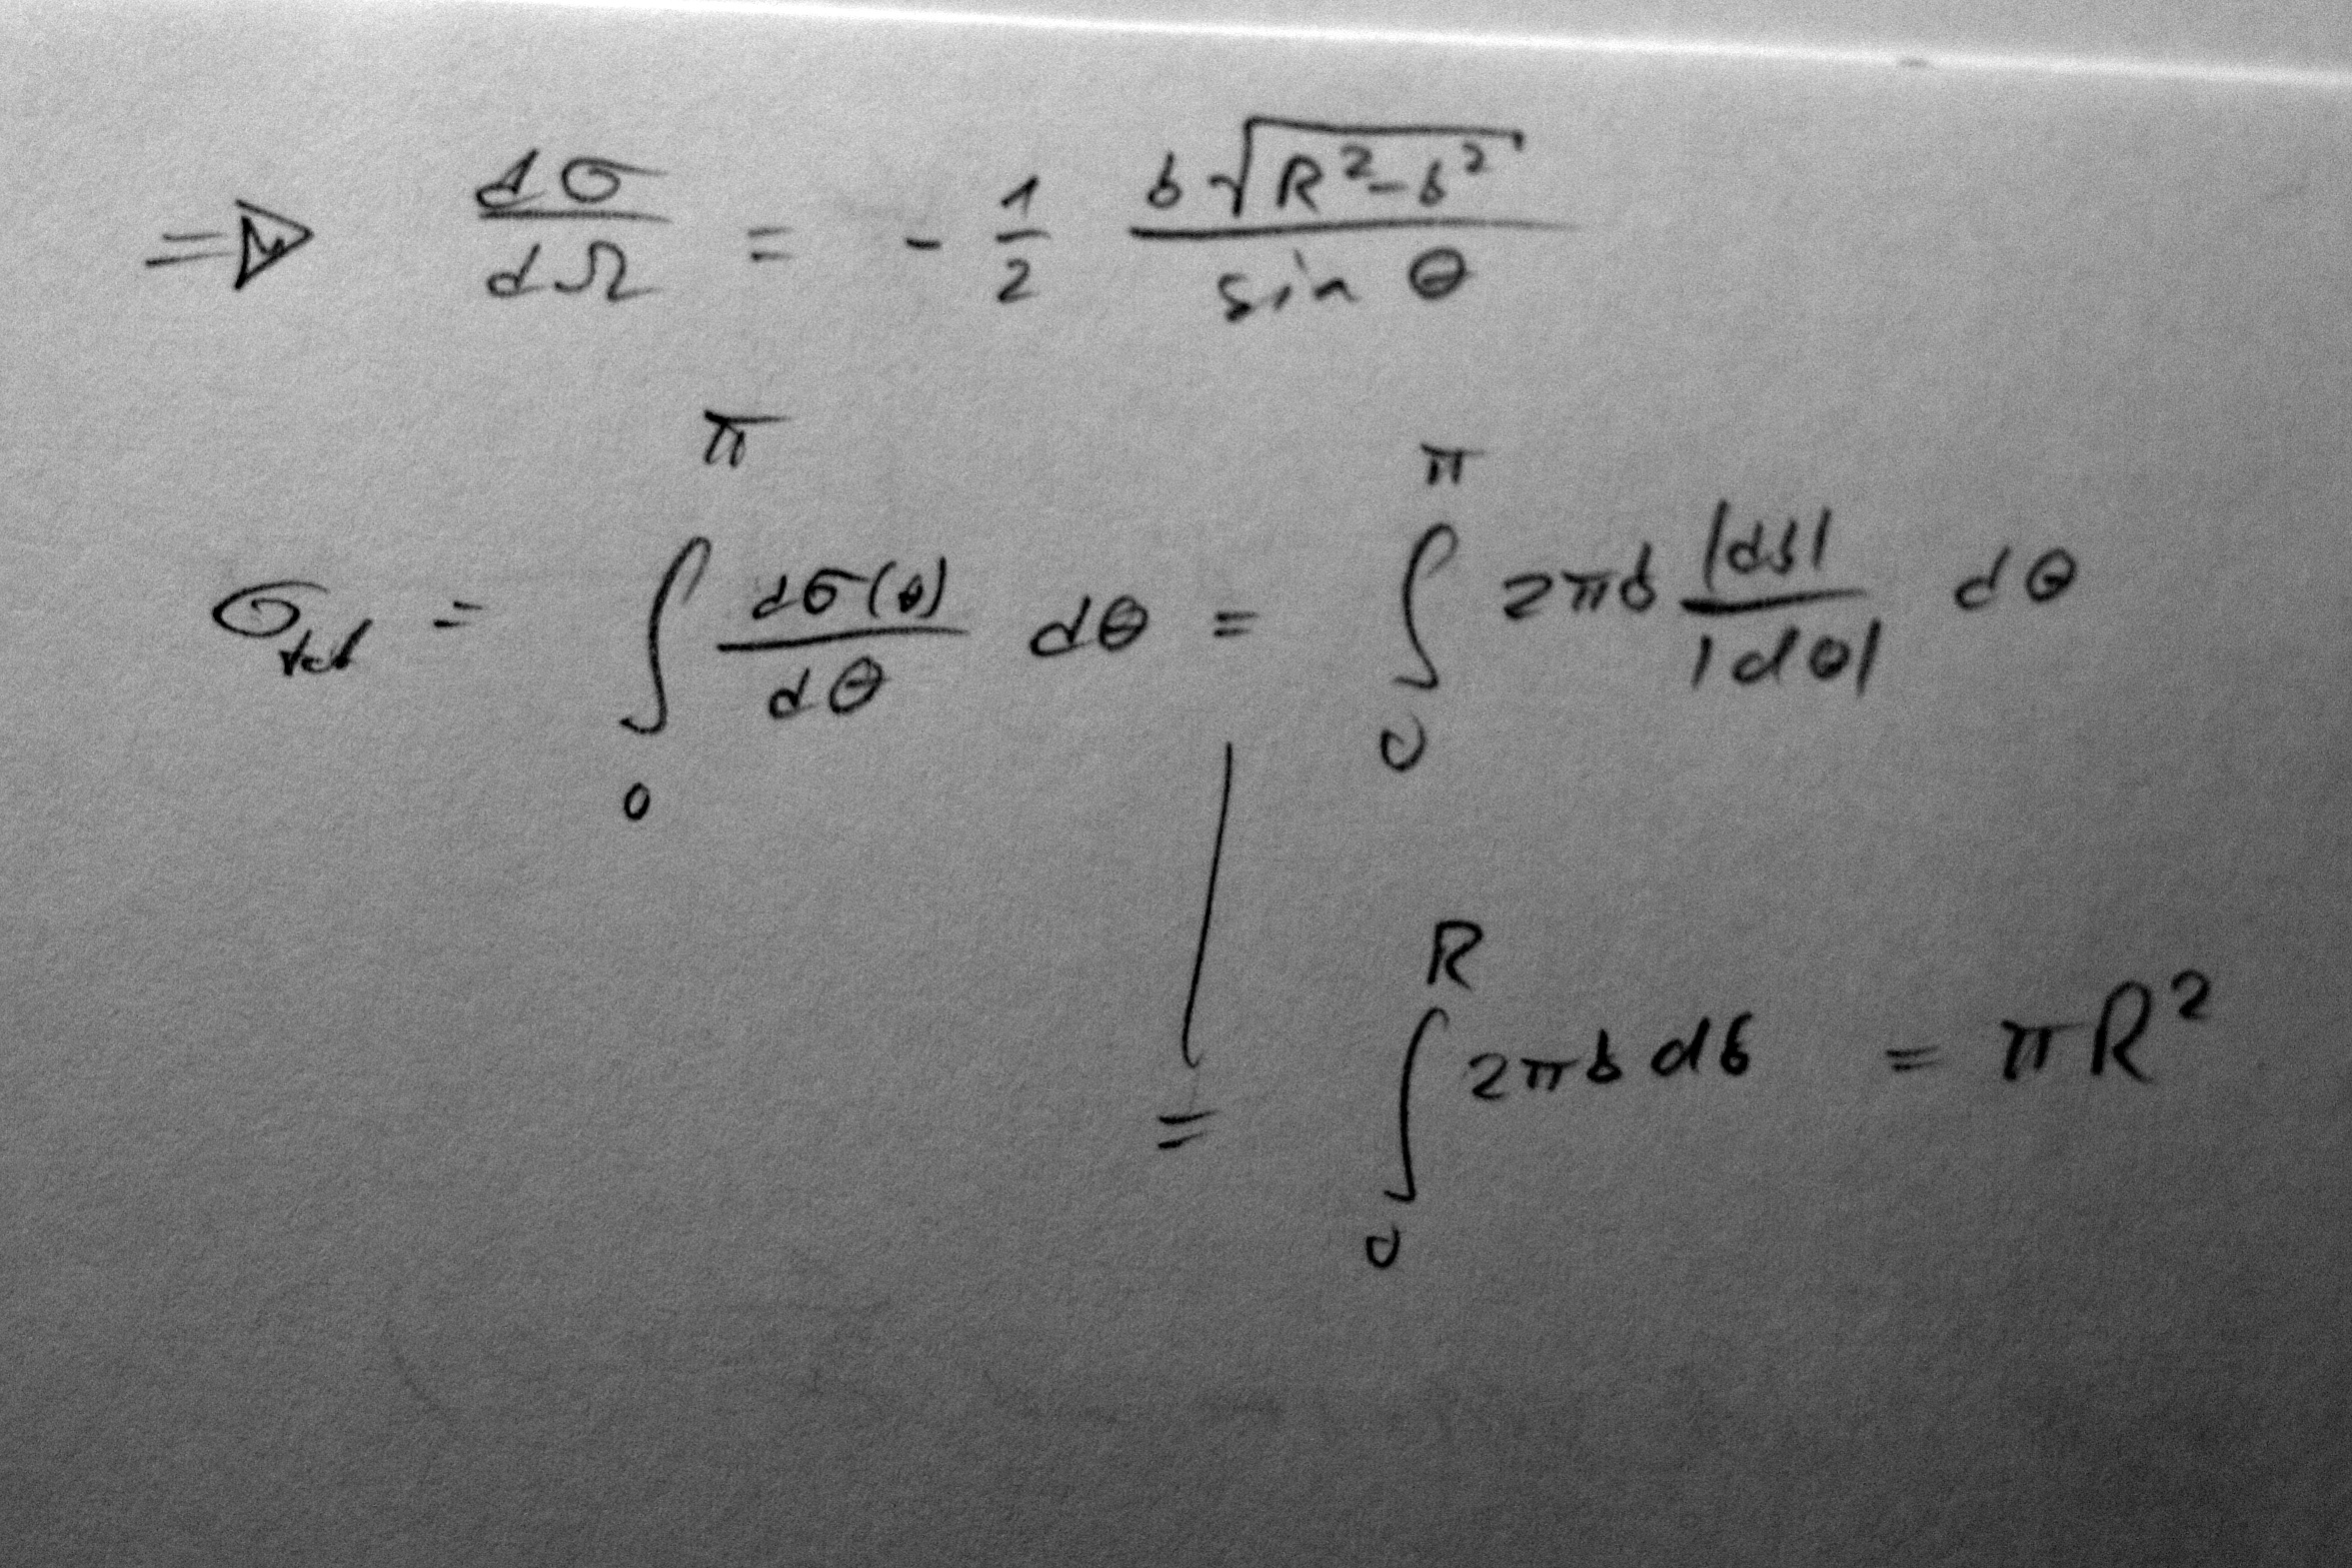 ⇒ dσ/dΩ = - 1/2 b√(R²-b²) / sin θ
σ_tot = ∫₀^π dσ(θ)/dθ dθ = ∫₀^π 2πb |db|/|dθ| dθ
= ∫₀^R 2πb db = πR²